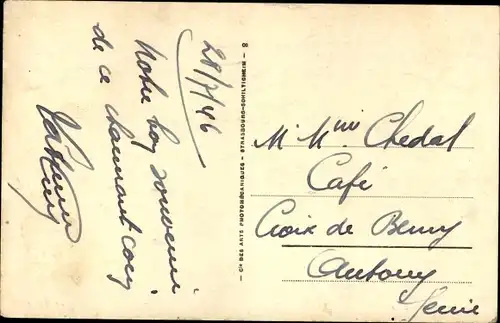 28/7/46
Notre bon souvenir
de ce charmant coin
Cie DES ARTS PHOTOMÉCANIQUES - STRASBOURG-SCHILTIGHEIM - 8
M Mme Chedal
Café
Croix de Berny
Antony
Seine